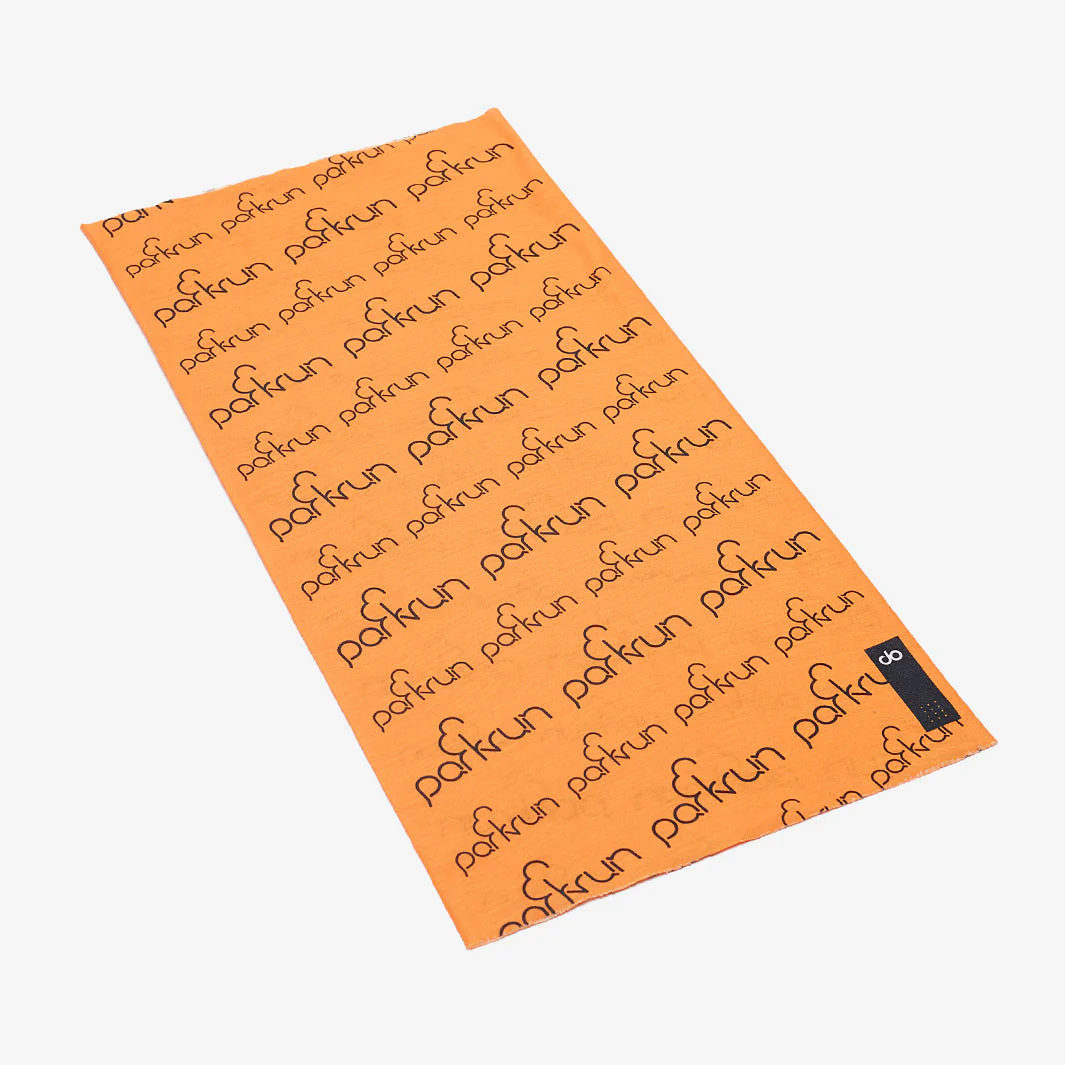 park
parkrun parkrun parkrun
parkrun parkrun parkrun
parkrun parkrun parkrun parkrun
parkrun parkrun parkrun
parkrun parkrun parkrun parkrun
parkrun parkrun parkrun
parkrun parkrun parkrun parkrun
parkrun parkrun parkrun
parkrun parkrun parkrun parkrun
parkrun parkrun parkrun
parkrun parkrun parkrun parkrun
parkrun parkrun parkru
parkrun